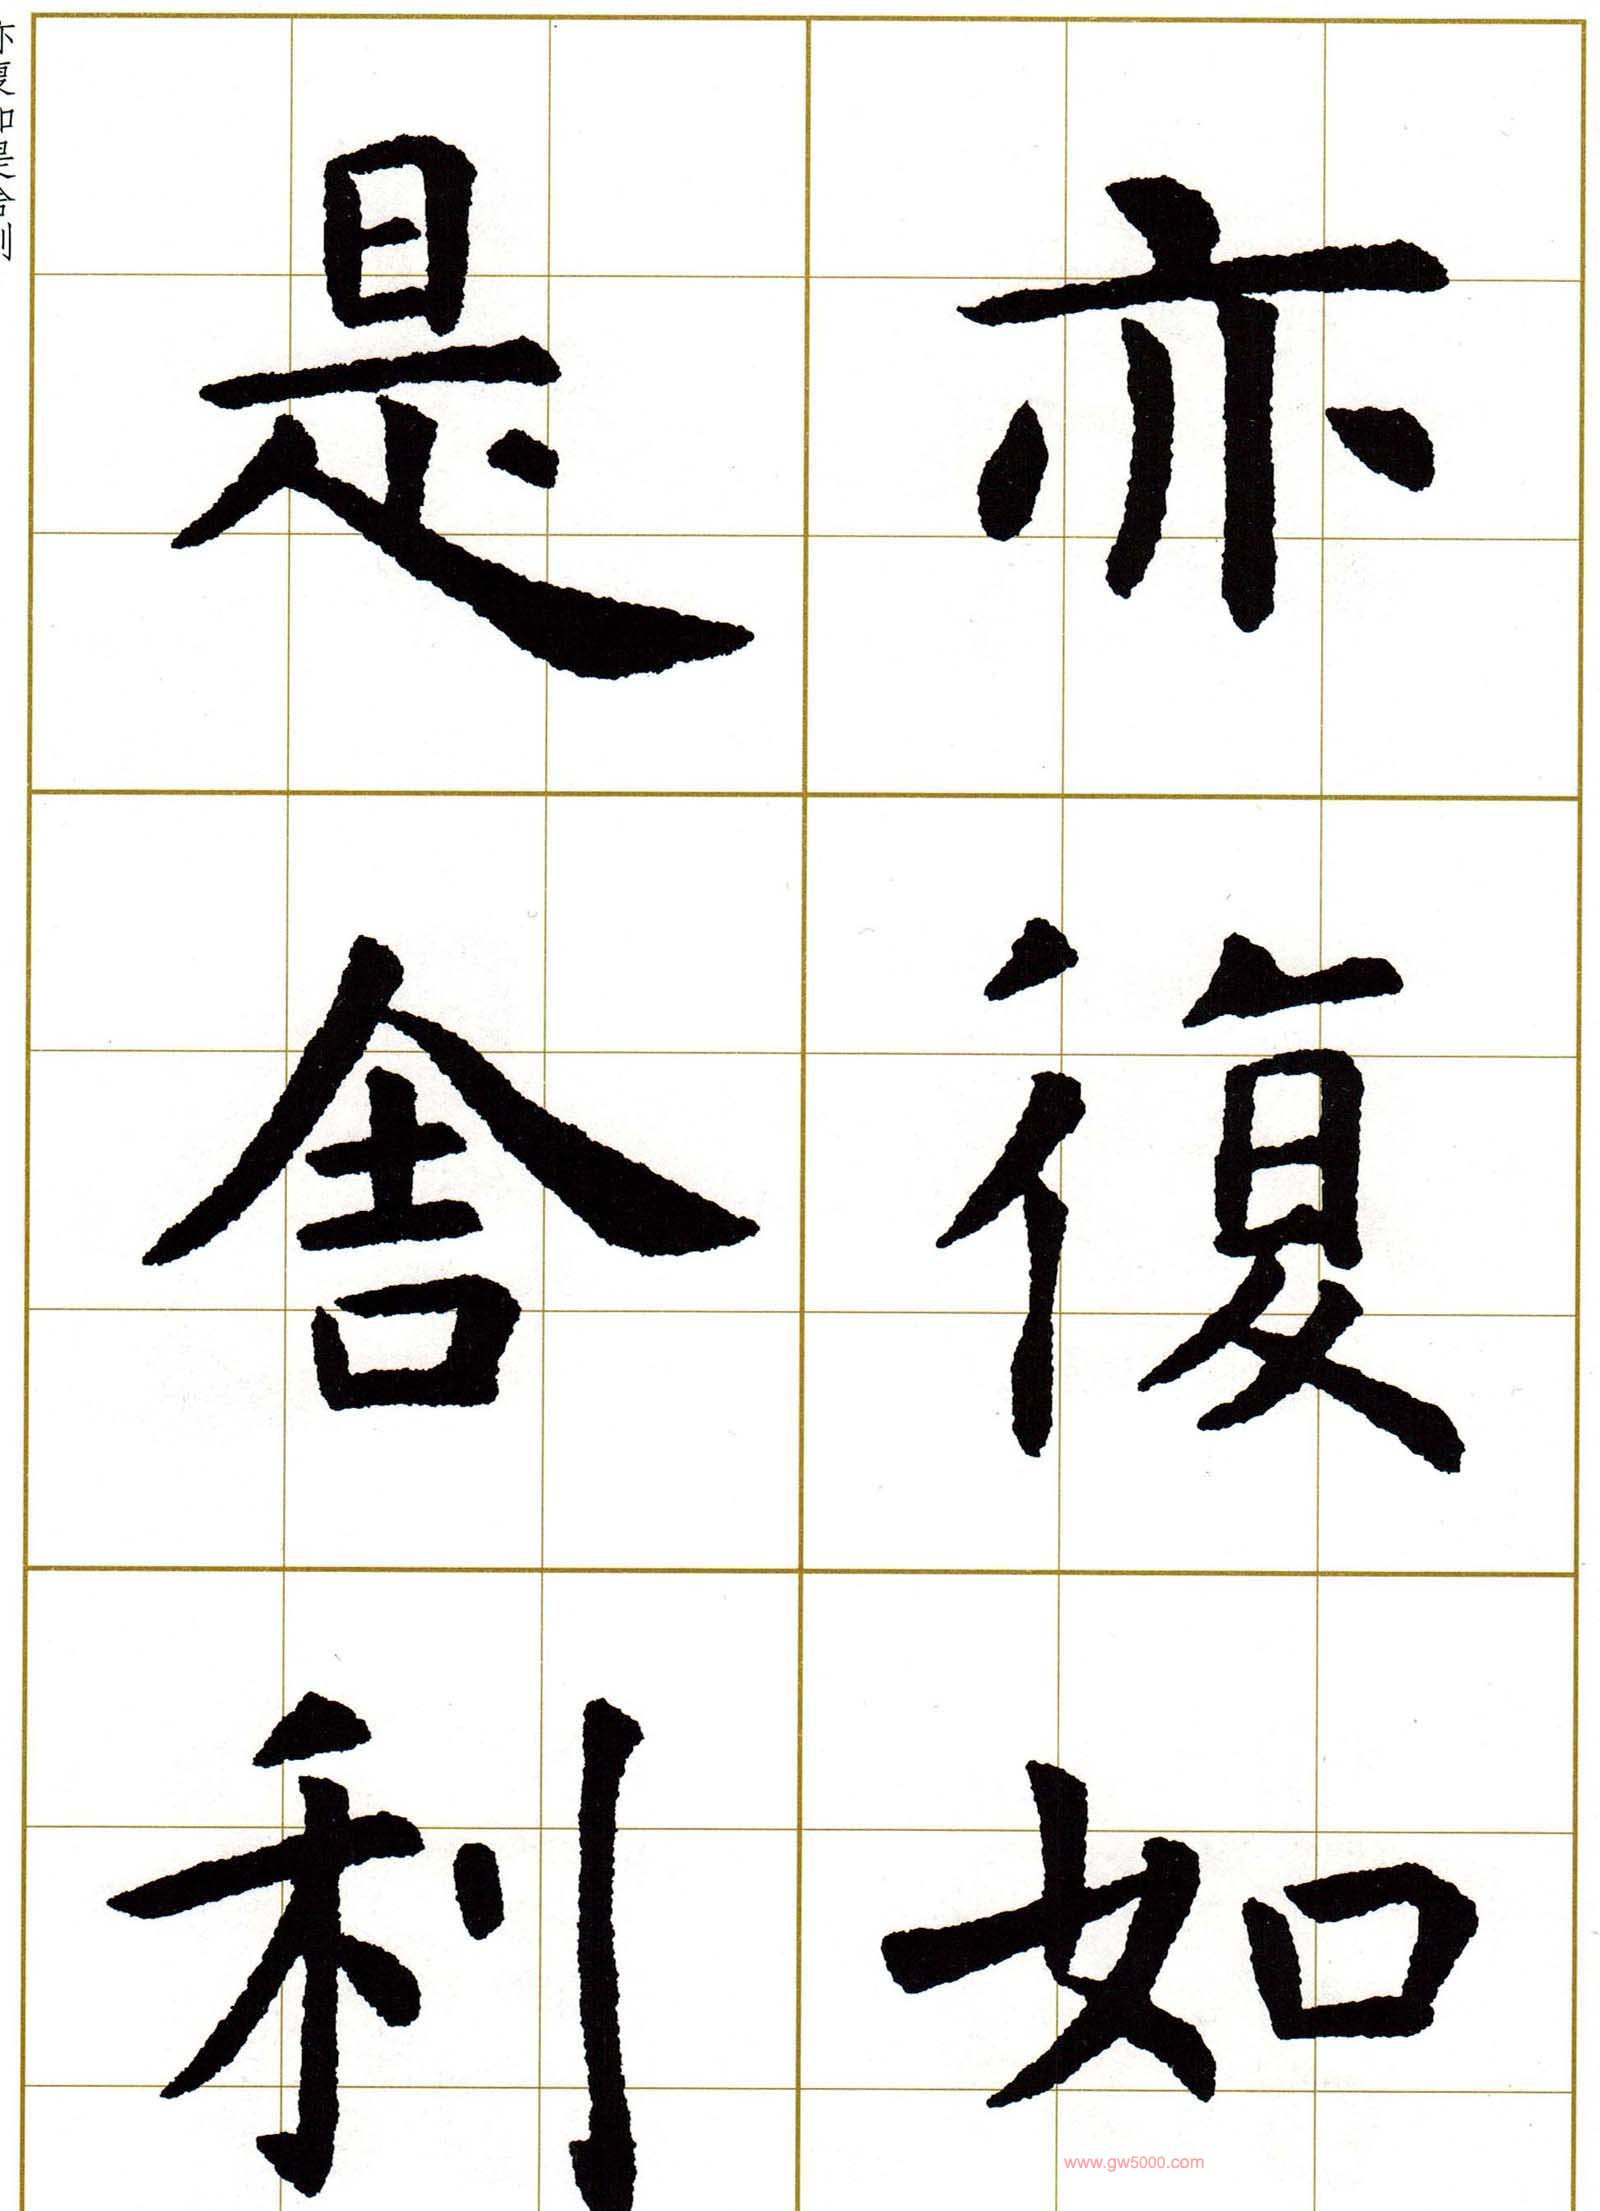 亦復如
是舍利
亦復如是舍利
www.gw5000.com